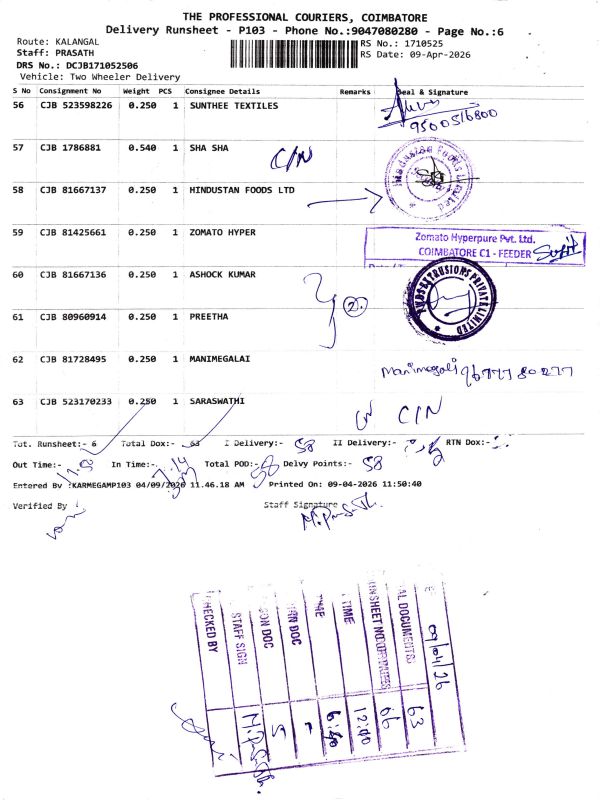 THE PROFESSIONAL COURIERS, COIMBATORE
Delivery Runsheet - P103 - Phone No.:9047080280 - Page No.:6
Route: KALANGAL RS No.: 1710525
Staff: PRASATH RS Date: 09-Apr-2026
DRS No.: DCJB171052506
Vehicle: Two Wheeler Delivery
S No Consignment No Weight PCS Consignee Details Remarks Seal & Signature
56 CJB 523598226 0.250 1 SUNTHEE TEXTILES
9500516800
57 CJB 1786881 0.540 1 SHA SHA C/N
Hindustan Foods Limited
58 CJB 81667137 0.250 1 HINDUSTAN FOODS LTD
59 CJB 81425661 0.250 1 ZOMATO HYPER
Zomato Hyperpure Pvt. Ltd.
COIMBATORE C1 - FEEDER
60 CJB 81667136 0.250 1 ASHOCK KUMAR
2.
EXTRUSIONS PRIVATE LIMITED
61 CJB 80960914 0.250 1 PREETHA
62 CJB 81728495 0.250 1 MANIMEGALAI
Manimegali 9677780277
63 CJB 523170233 0.250 1 SARASWATHI C/N
Tot. Runsheet:- 6 Total Dox:- 63 I Delivery:- 58 II Delivery:- RTN Dox:-
Out Time:- In Time:- Total POD:- 58 Delvy Points:- 58
Entered By :KARMEGAMP103 04/09/2026 11.46.18 AM Printed On: 09-04-2026 11:50:40
Verified By Staff Signature
09/04/26
AL DOCUMENTS 63
66
TIME 12:40
6:40
DOC
DOC 5
STAFF SIGN
CHECKED BY